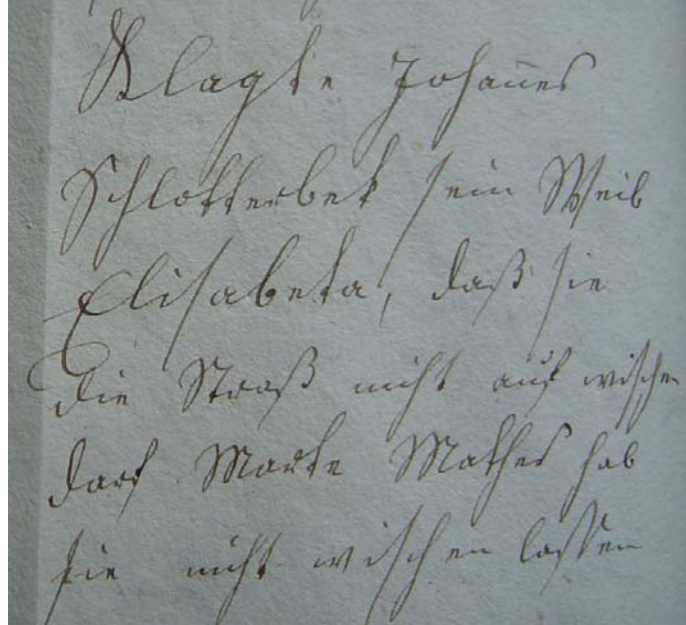 Klagte Johan̄es
Schlotterbek sein Weib
Elisabeta, daß sie
die Straß nicht auf wischen
darf Marte Mathes hab
sie nicht wischen lassen